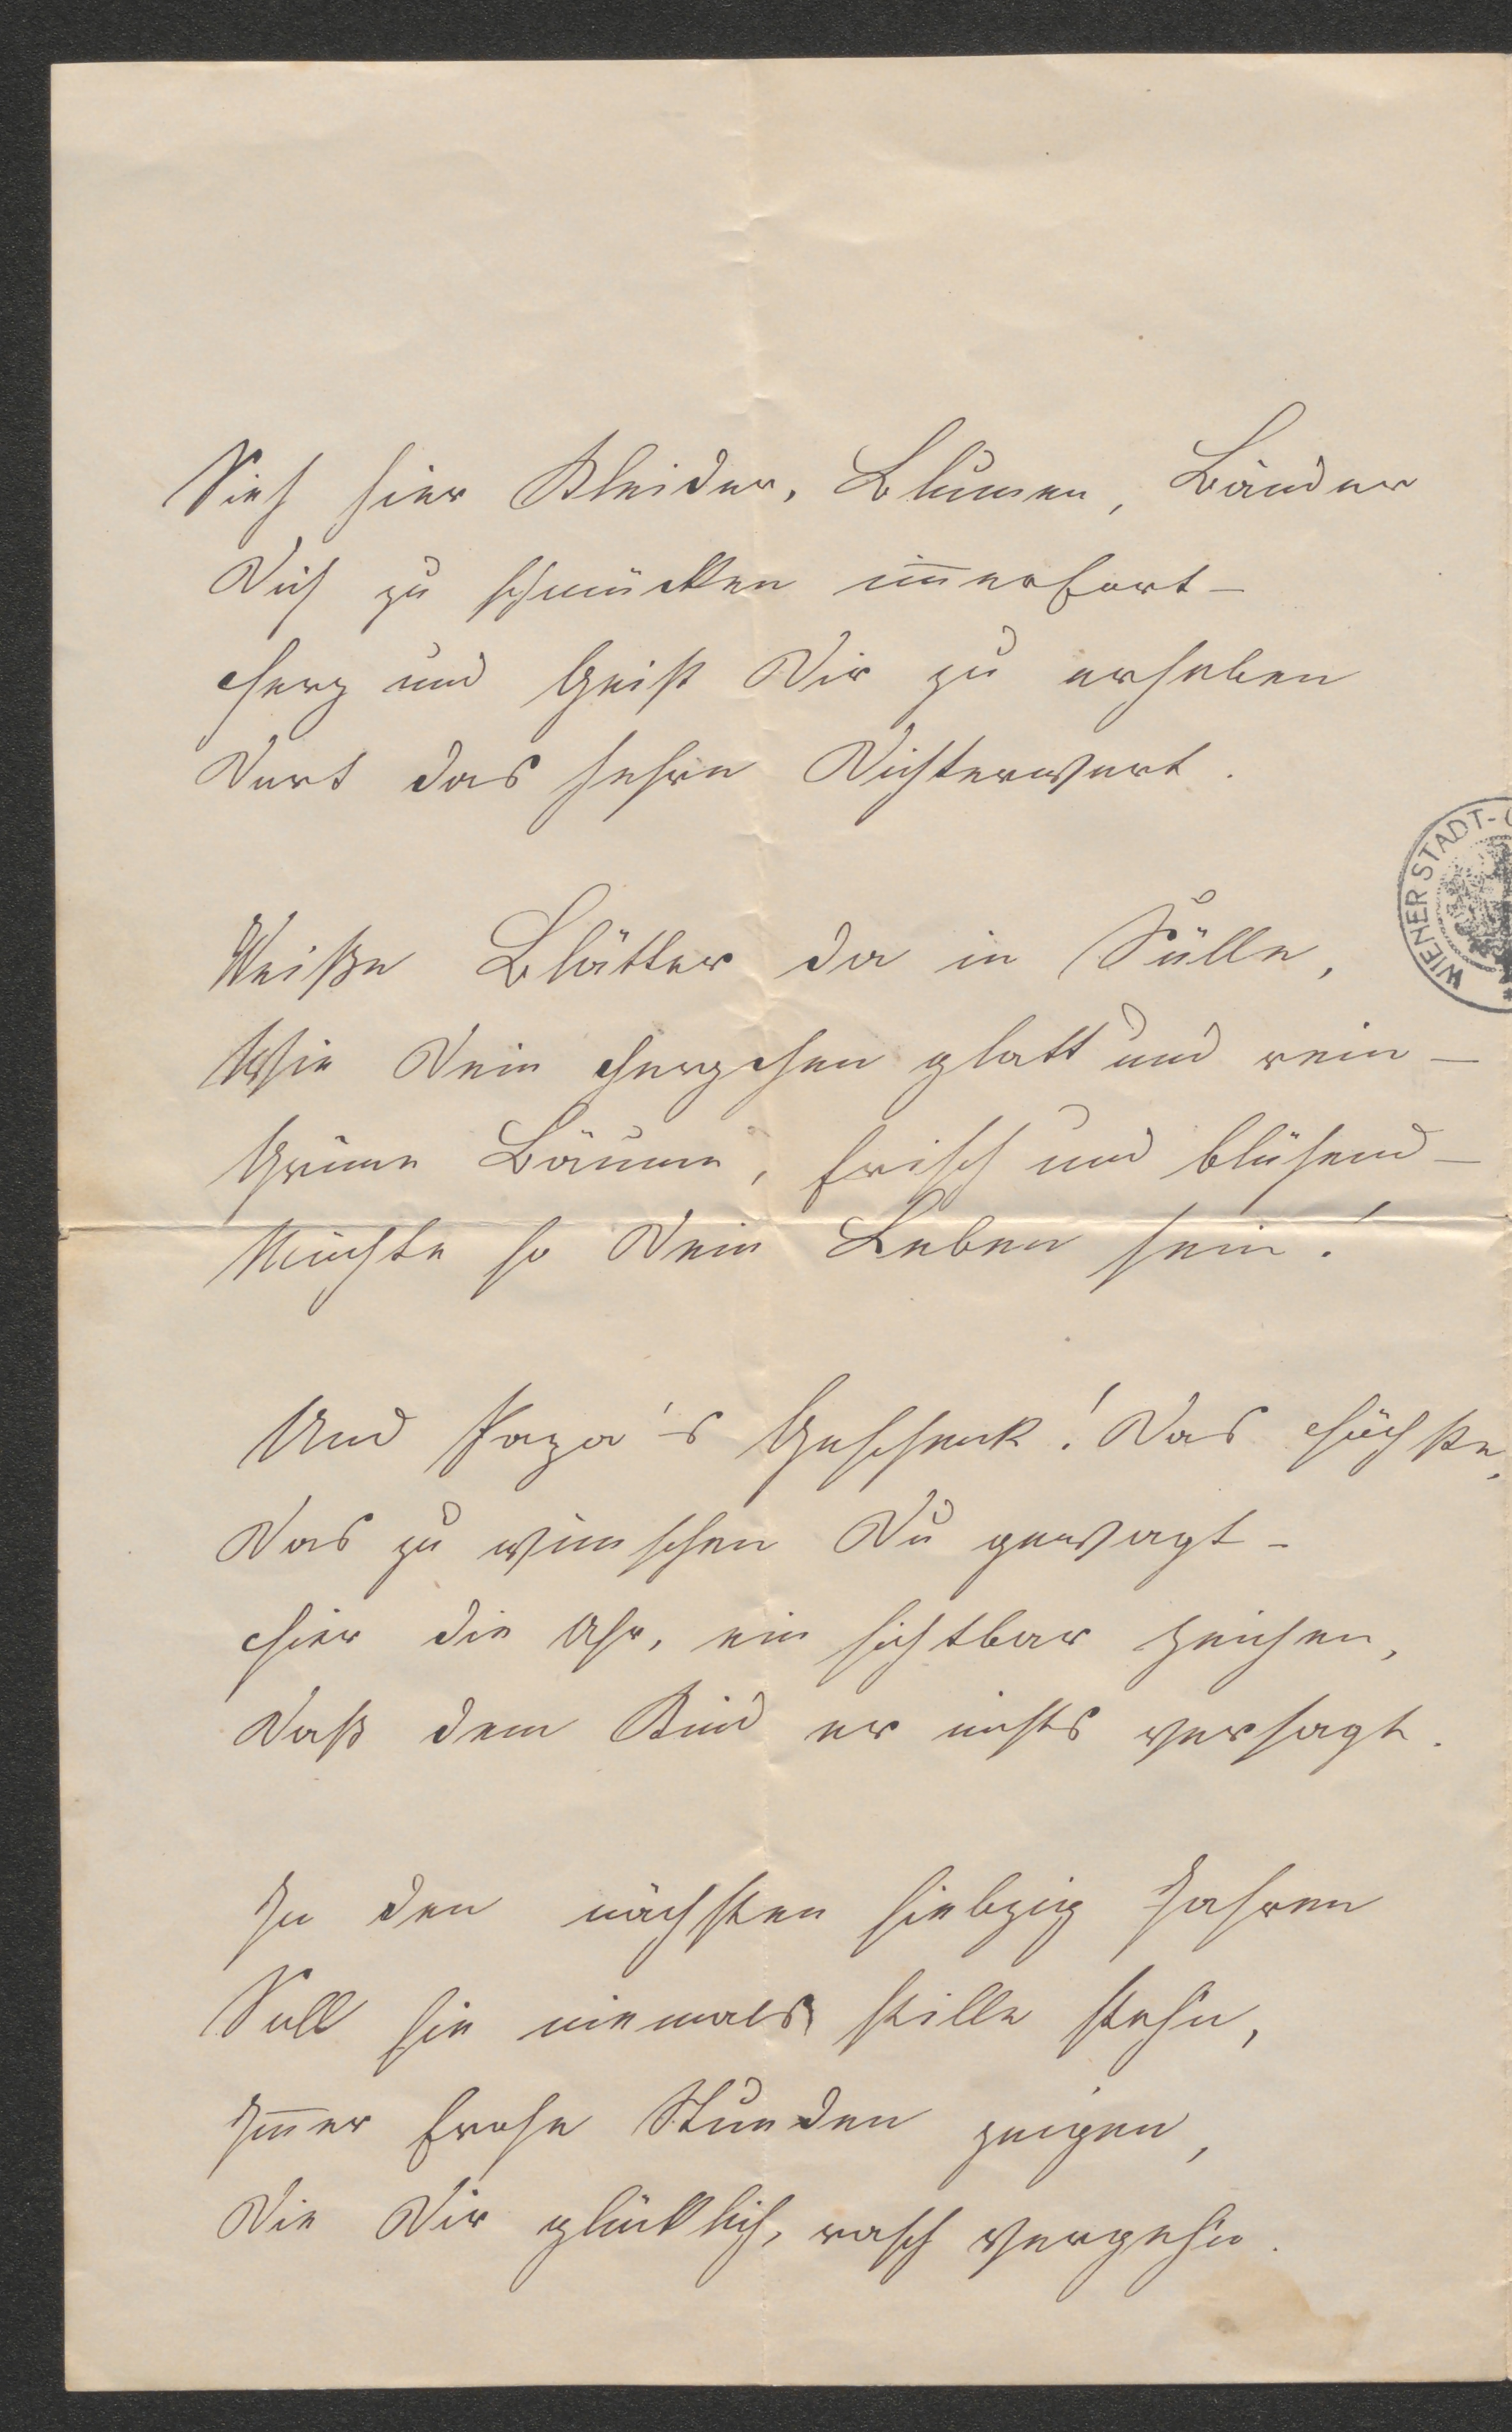 Sieh hier Kleider, Blumen, Bänder
Dich zu schmücken im̅erfort –
Herz und Geist Dir zu erheben
Dort das hehre Dichterwort.
Weiße Blätter da in Fülle,
Wie Dein Herzchen glatt und rein –
Grüne Bäume, frisch und blühend –
Möchte so Dein Leben sein!
Und Papa's Geschenk! Das Höchste,
Das zu wünschen Du gewagt –
Hier die Uhr, ein sichtbar Zeichen,
Daß dem Kind er nichts versagt.
In den nächsten siebzig Jahren
Soll sie niemals stille stehn,
Im̅er frohe Stunden zeigen,
Die Dir glücklich, rasch vergehn.
WIENER STADT-